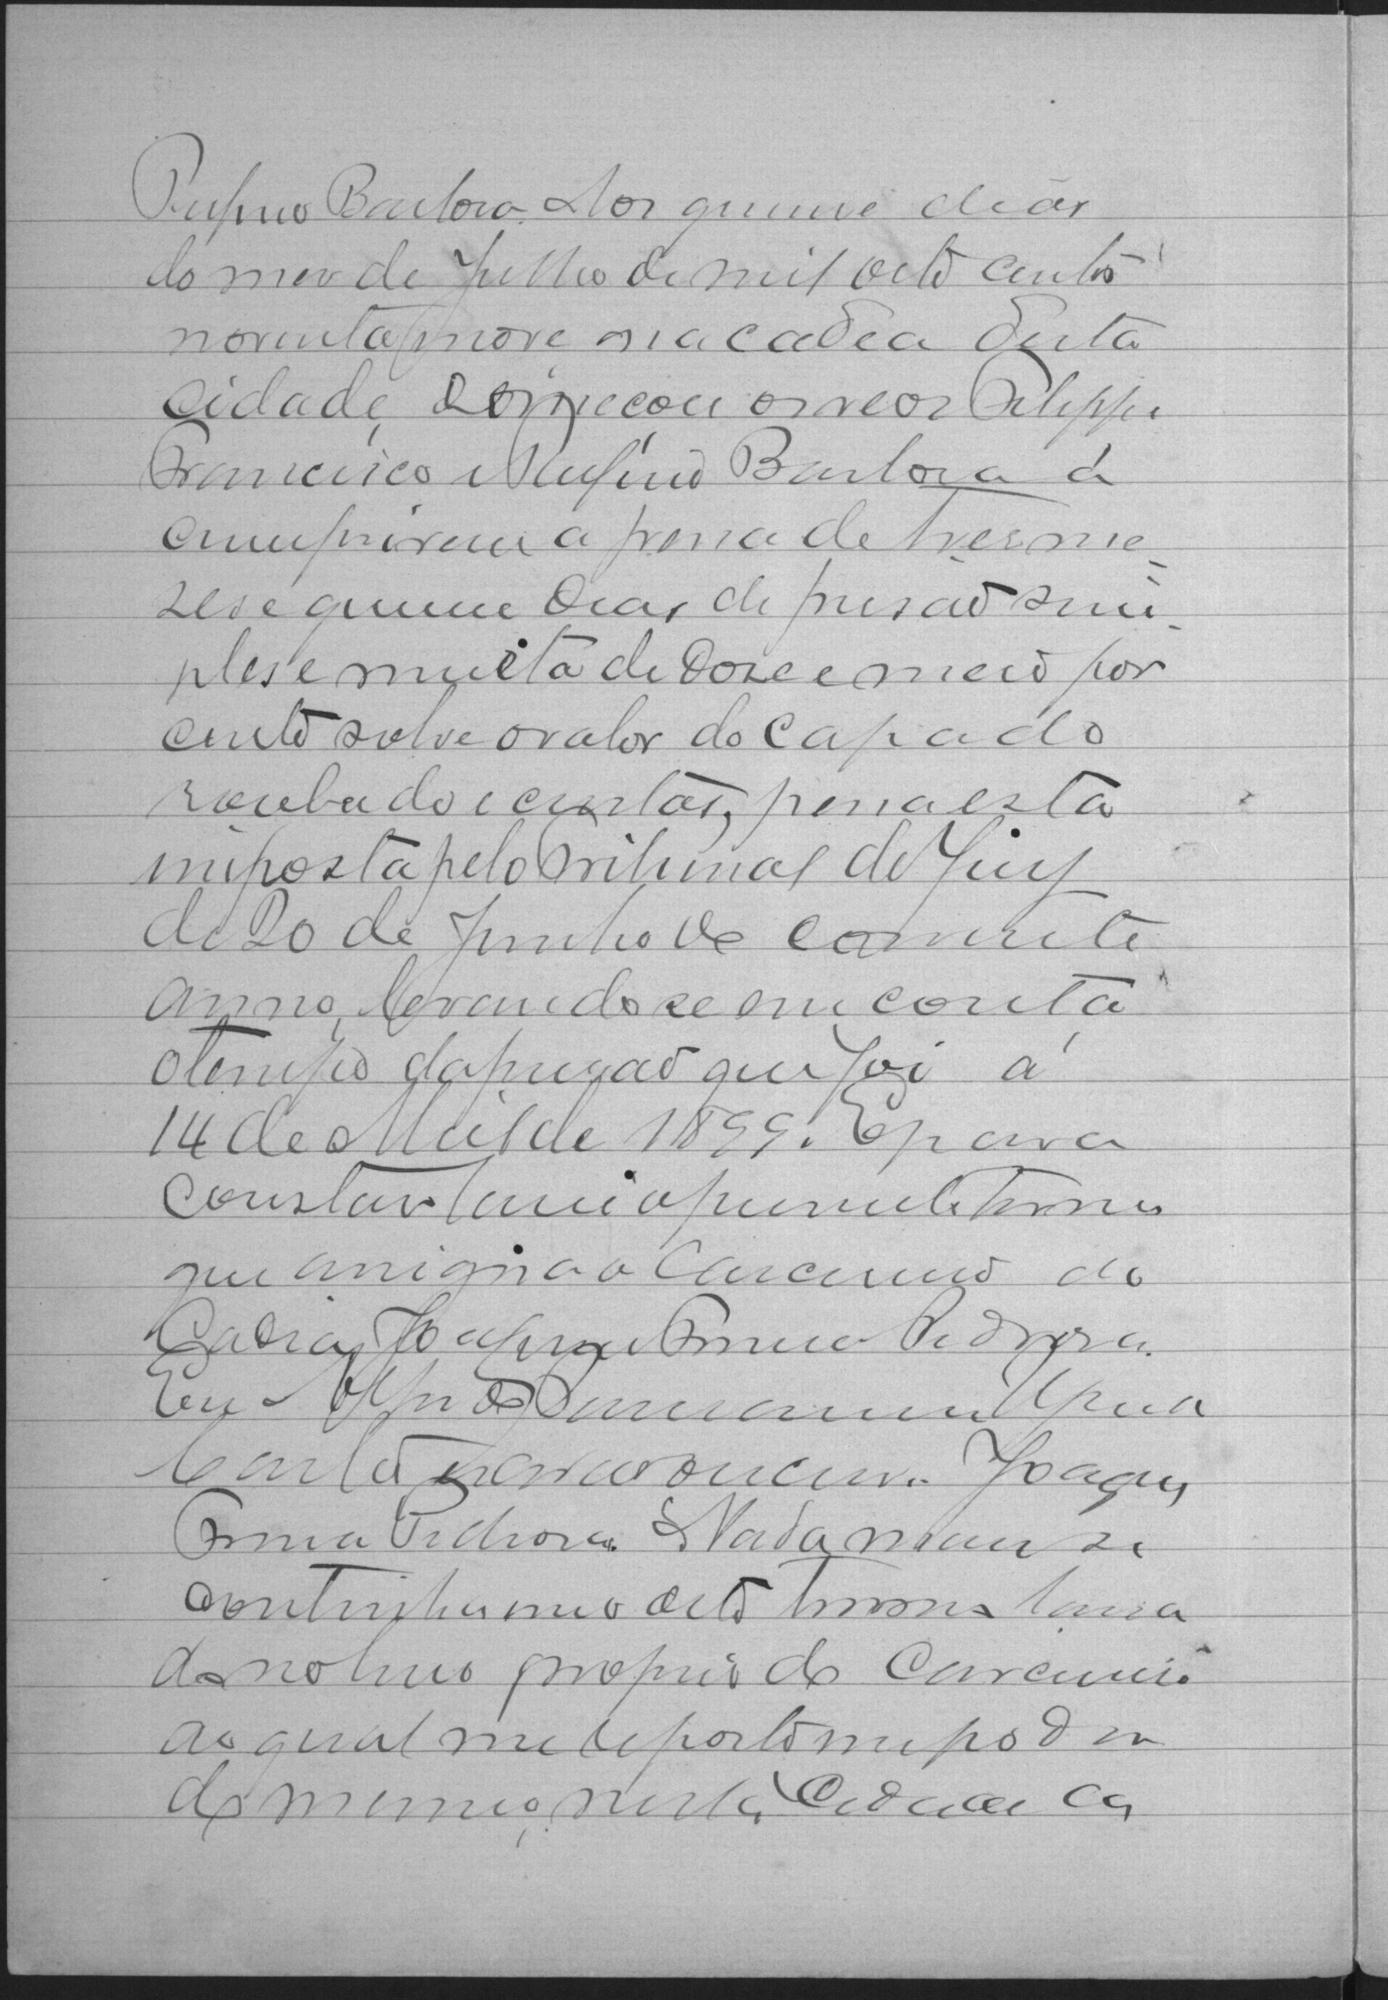 Rufino Barbosa. Aos quinze dias
do mez de Julho de mil oito centos
noventa e nove na cadêa desta
cidade, começou os reos Felippe
Francisco e Rufino Barbosa a
cumprirem a pena de tres me-
zes e quinze dias de prisão sim-
ples e multa de doze e meio por
cento sobre o valor do capado
roubado e custas, pena esta
imposta pelo Tribunal do Jury
de 20 de Junho do corrente
anno, levando se em conta
o tempo da prisão que foi á
14 de Abril de 1899. E para
constar lavrei o presente termo
que assigna o Carcereiro da
Cadeia, Joaquim Pedroza.
Eu
Joaqm
Pedroza. Nada mais se
continha no dito termo lavra
do no livro proprio do Carcereiro
ao qual me reporto em poder
do mesmo, nesta Cidade